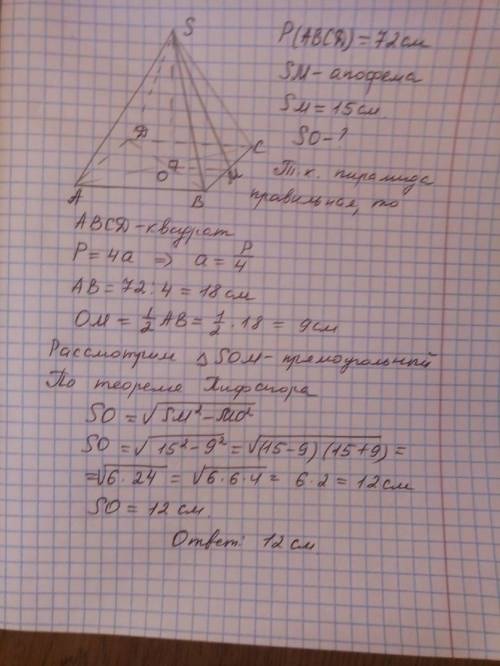 S
P(ABCD) = 72 см
SM - апофема
SM = 15 см.
SO - ?
D
C
O
M
A
B
Т.к. пирамида
правильная, то
ABCD - квадрат
P = 4a => a = P/4
AB = 72 : 4 = 18 см
OM = 1/2 AB = 1/2 · 18 = 9 см
Рассмотрим △ SOM - прямоугольный
По теореме Пифагора
SO = √(SM² - MO²)
SO = √(15² - 9²) = √((15-9)(15+9)) =
= √(6 · 24) = √(6 · 6 · 4) = 6 · 2 = 12 см
SO = 12 см.
Ответ: 12 см